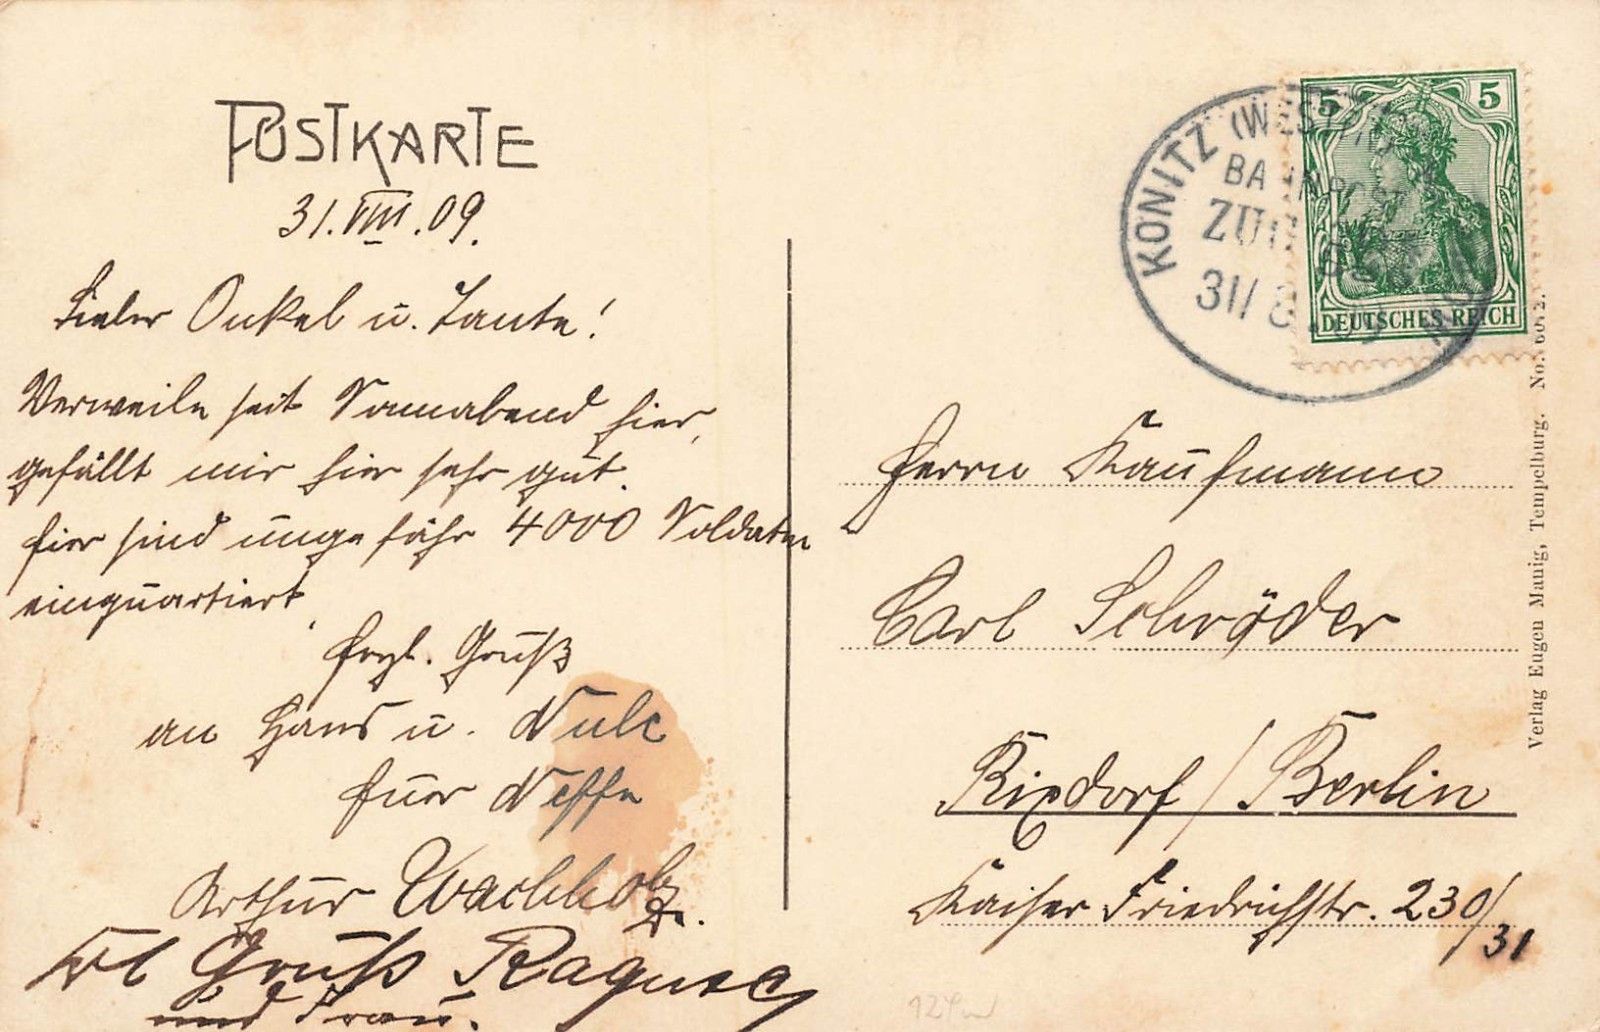 POSTKARTE
31.VIII.09.
Lieber Onkel u. Tante!
Verweile seit Sonnabend hier,
gefällt mir hier sehr gut.
Hier sind ungefähr 4000 Soldaten
einquartiert.
Herzl. Gruß
an Hans u.
Euer Neffe
Arthur Wachholz
Gruß
und Frau.
KONITZ (WESTPR)
BAHNPOST
ZUG
31/8
5 5
DEUTSCHES REICH
Herrn Kaufmann
Carl Schröder
Rixdorf / Berlin
Kaiser Friedrichstr. 230/
31
Verlag Eugen Manig, Tempelburg. No. 6042.